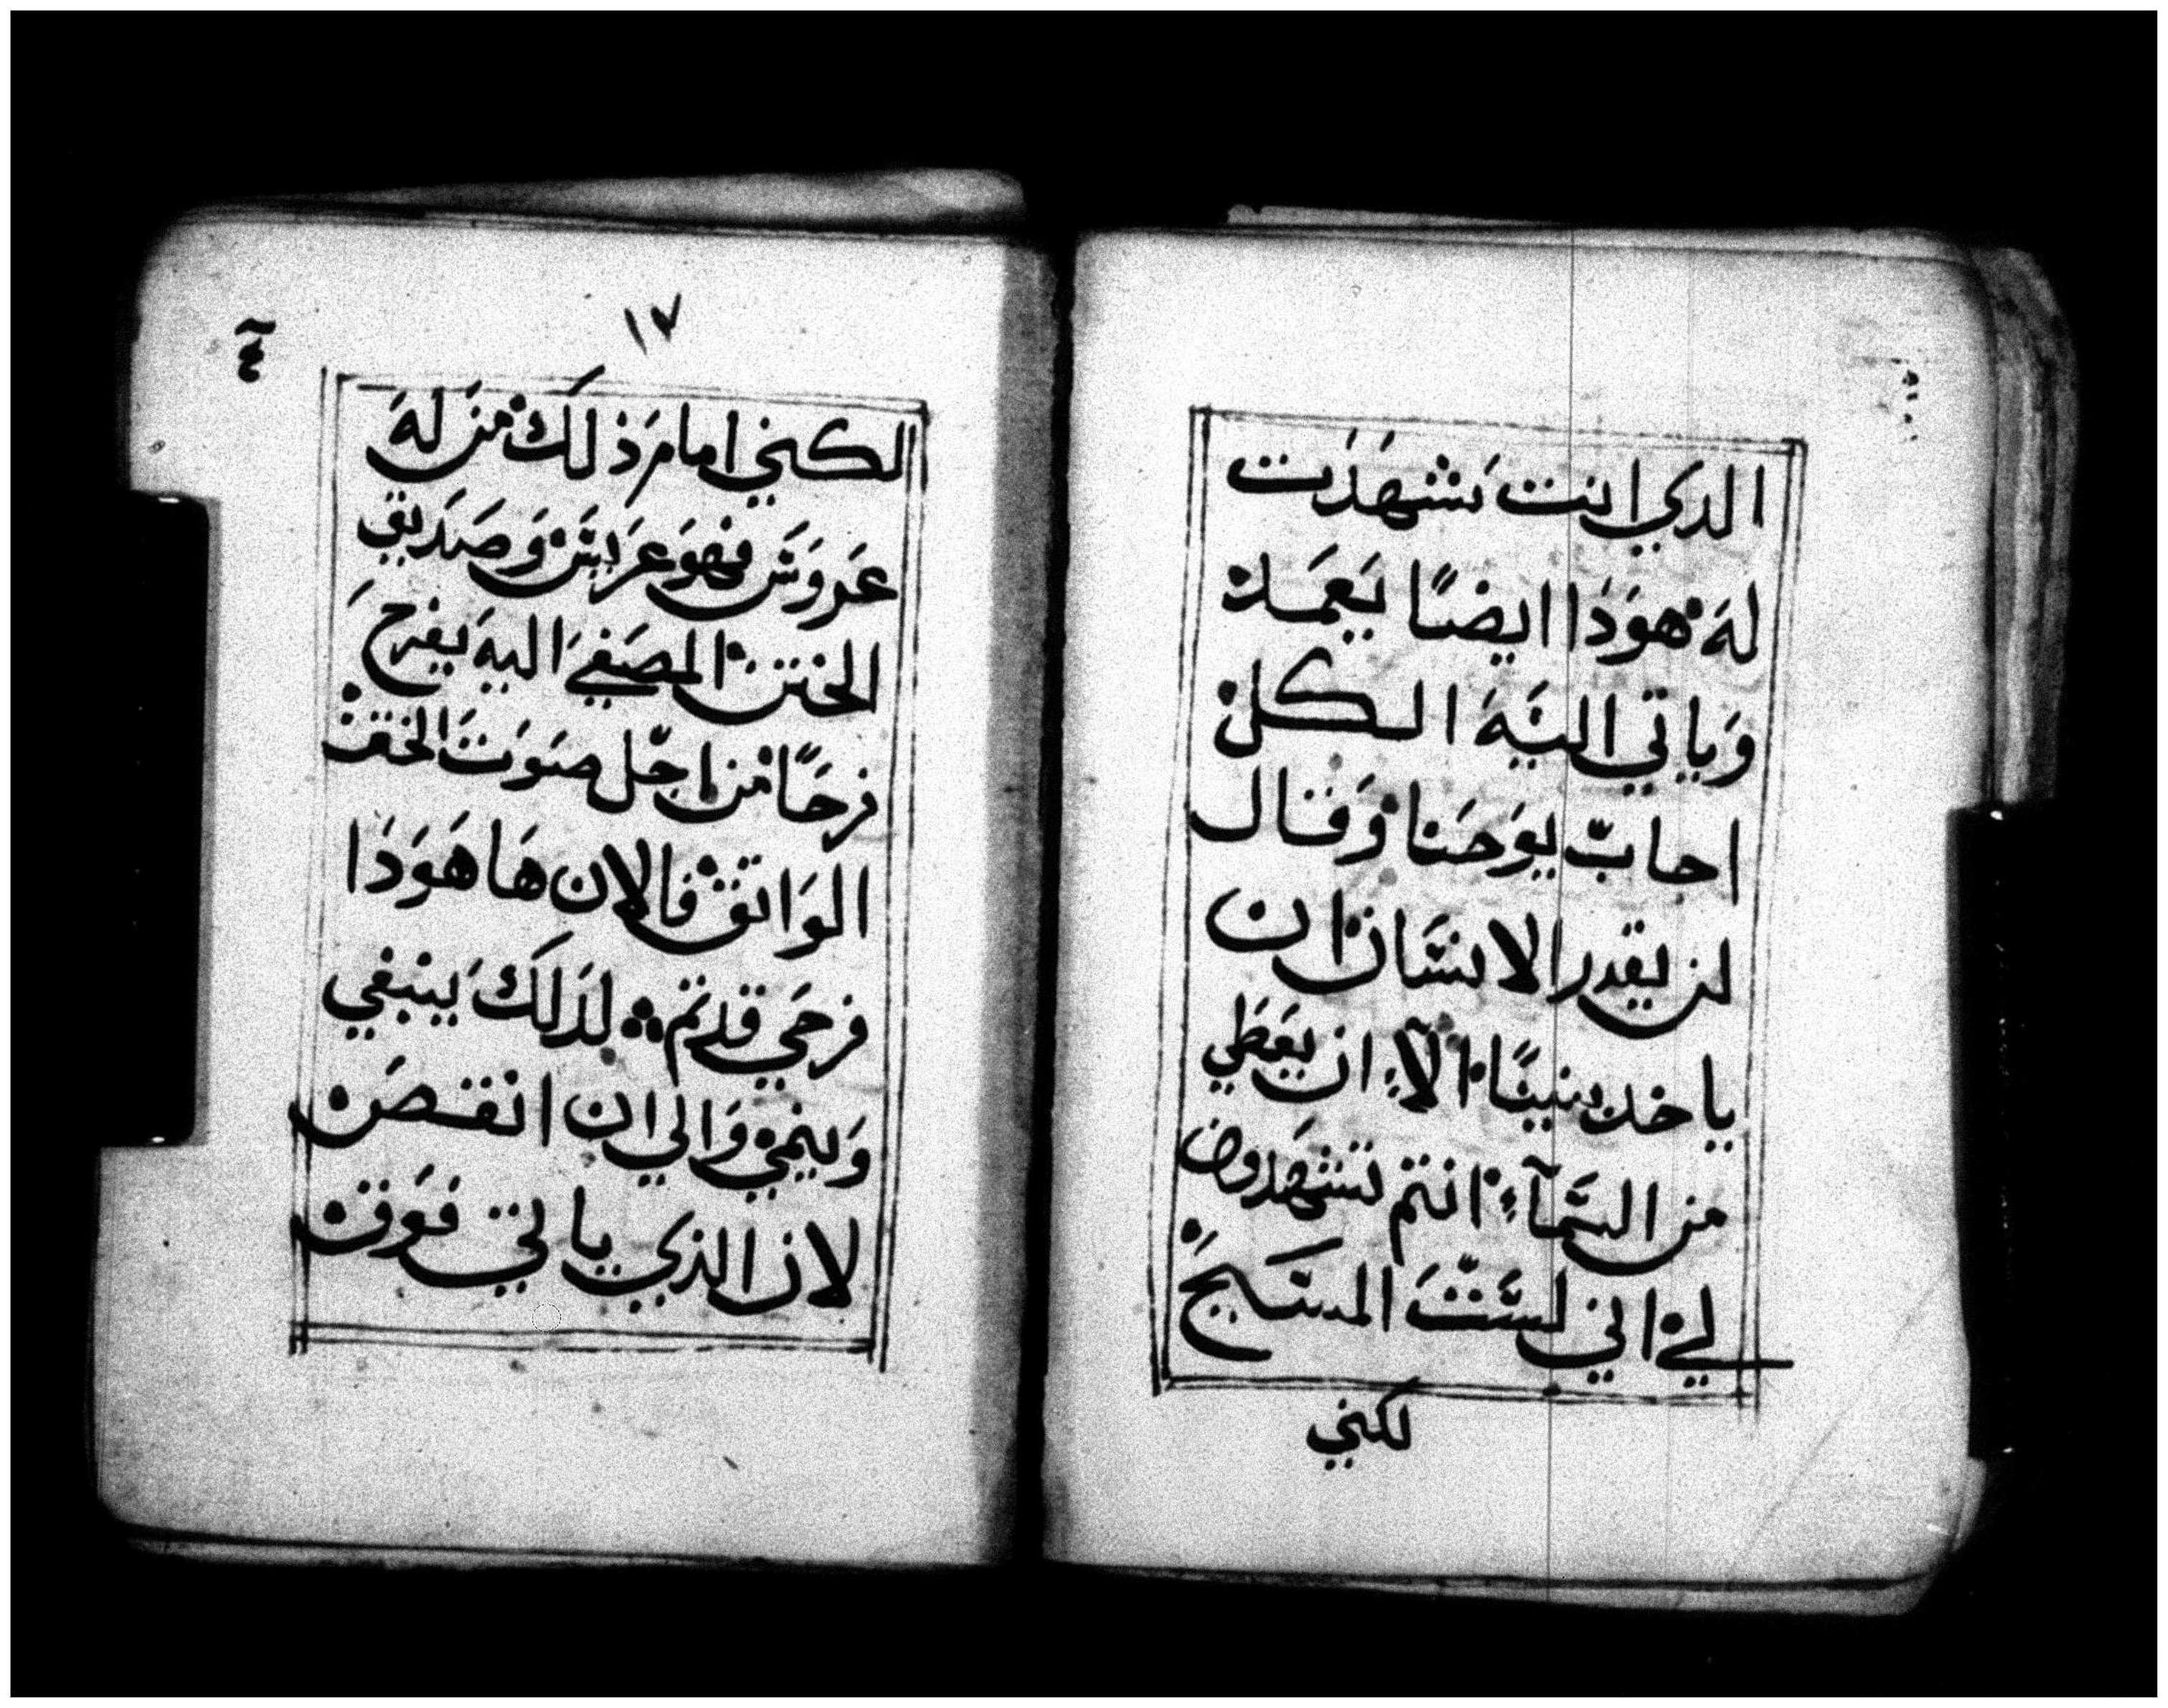 الدي انت شهدت
له هودا ايضًا يعمد
وياتي اليه الكل
اجاب يوحنا وقال
لن يقدر الانسان ان
ياخد شيئًا الآء ان يعطي
من السمآء انتم تشهدون
لي اني لست المسيح
لكني
١٧
لكني امام ذلك من له
عروس فهو عريس وصديق
الختن المصغي اليه يفرح
فرحًا من اجل صوت الختن
الواقف فالان ها هودا
فرحي قد تم لدلك ينبغي
وينمي والي ان انقص
لان الذي ياتي فوق